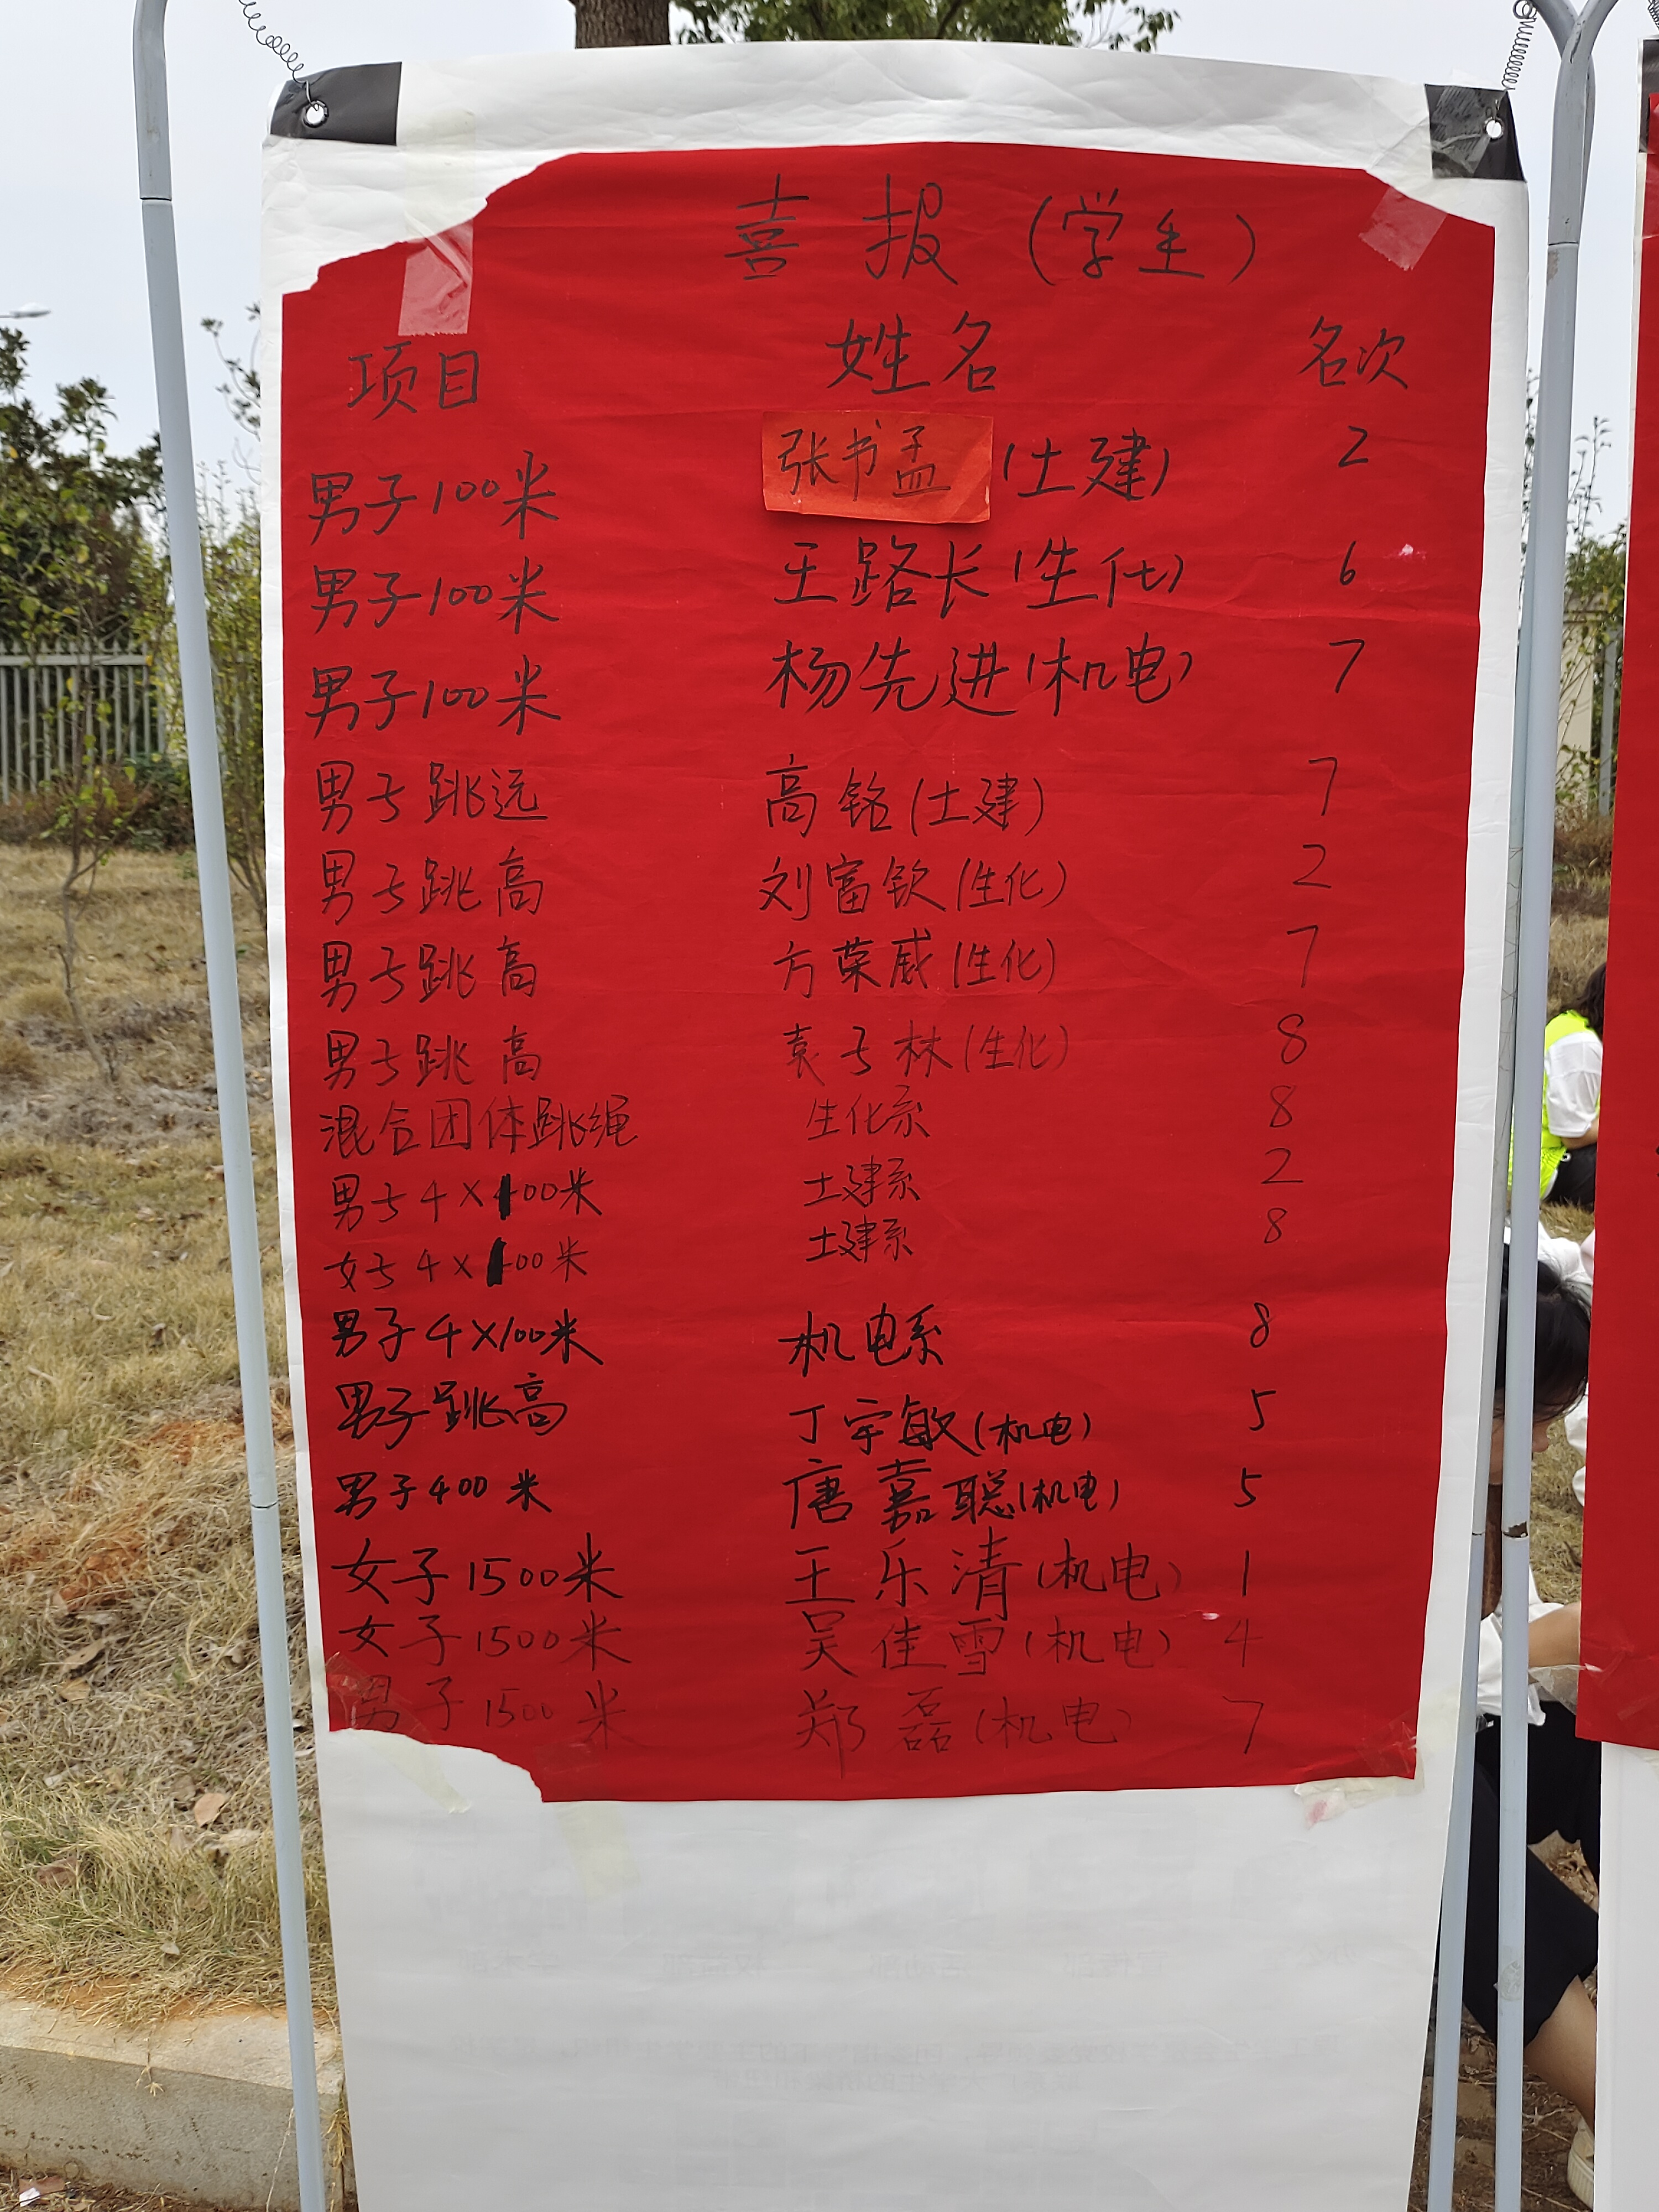 喜报（学生）
项目 姓名 名次
男子100米 张书孟（土建） 2
男子100米 王路长（生化） 6
男子100米 杨先进（机电） 7
男子跳远 高铭（土建） 7
男子跳高 刘富钦（生化） 2
男子跳高 方荣威（生化） 7
男子跳高 袁子林（生化） 8
混合团体跳绳 生化系 8
男子4×100米 土建系 2
女子4×100米 土建系 8
男子4×100米 机电系 8
男子跳高 丁宇敏（机电） 5
男子400米 唐嘉聪（机电） 5
女子1500米 王乐清（机电） 1
女子1500米 吴佳雪（机电） 4
男子1500米 郑磊（机电） 7